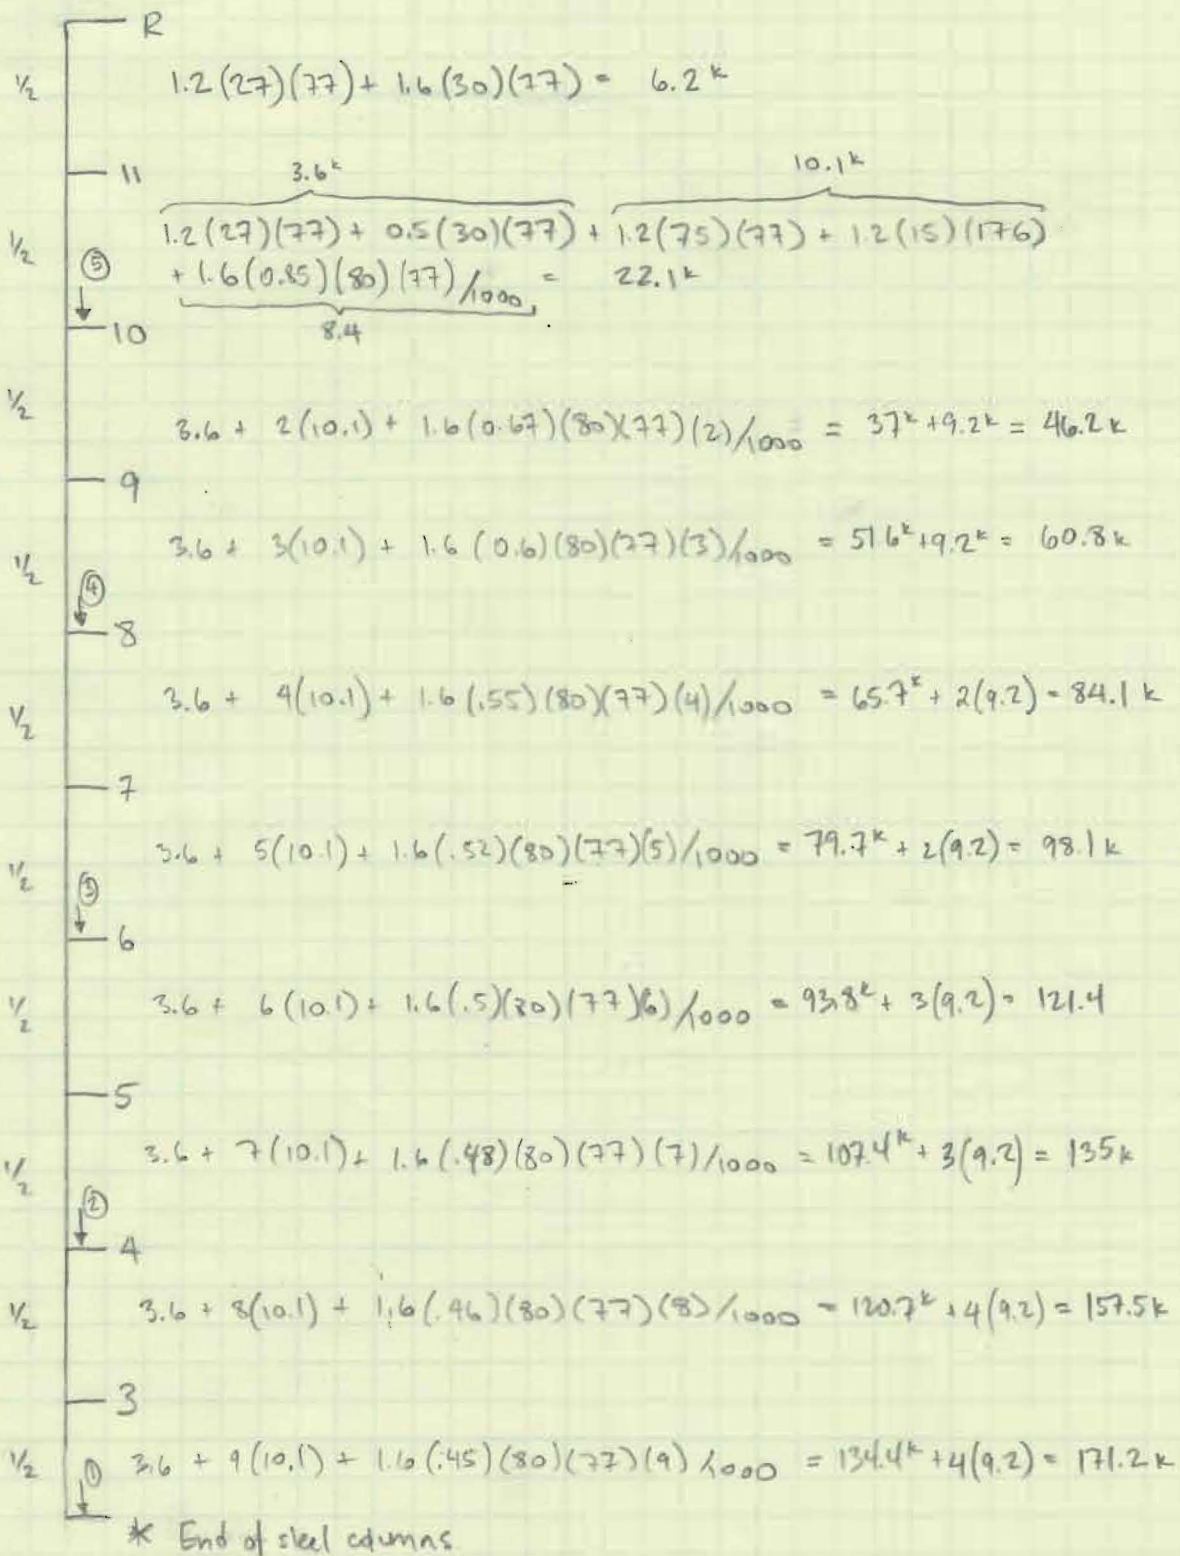 R
1/2 1.2(27)(77) + 1.6(30)(77) = 6.2k
11 3.6k 10.1k
1/2 1.2(27)(77) + 0.5(30)(77) + 1.2(75)(77) + 1.2(15)(176)
⑤ + 1.6(0.85)(80)(77)/1000 = 22.1k
10 8.4
1/2 3.6 + 2(10.1) + 1.6(0.67)(80)(77)(2)/1000 = 37k + 9.2k = 46.2k
9
1/2 3.6 + 3(10.1) + 1.6(0.6)(80)(77)(3)/1000 = 51.6k + 9.2k = 60.8k
④
8
1/2 3.6 + 4(10.1) + 1.6(.55)(80)(77)(4)/1000 = 65.7k + 2(9.2) = 84.1k
7
1/2 3.6 + 5(10.1) + 1.6(.52)(80)(77)(5)/1000 = 79.7k + 2(9.2) = 98.1k
③
6
1/2 3.6 + 6(10.1) + 1.6(.5)(80)(77)(6)/1000 = 93.8k + 3(9.2) = 121.4
5
1/2 3.6 + 7(10.1) + 1.6(.48)(80)(77)(7)/1000 = 107.4k + 3(9.2) = 135k
②
4
1/2 3.6 + 8(10.1) + 1.6(.46)(80)(77)(8)/1000 = 120.7k + 4(9.2) = 157.5k
3
1/2 ① 3.6 + 9(10.1) + 1.6(.45)(80)(77)(9)/1000 = 134.4k + 4(9.2) = 171.2k
* End of steel columns